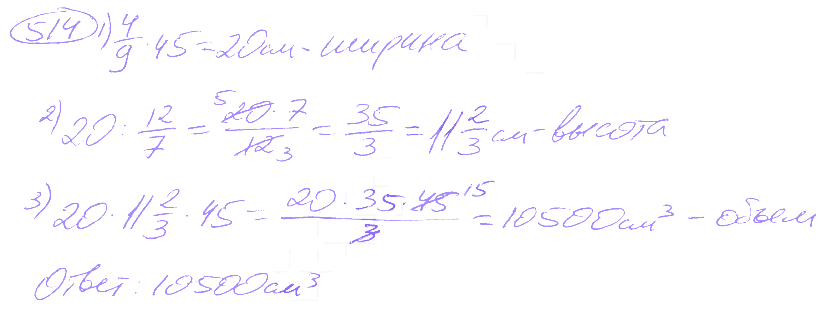 514 1) 4/9 · 45 = 20 см - ширина
2) 20 : 12/7 = 20 · 7 / 12 = 35/3 = 11 2/3 см - высота
3) 20 · 11 2/3 · 45 = 20 · 35 · 45 / 3 = 10500 см³ - объем
Ответ: 10500 см³